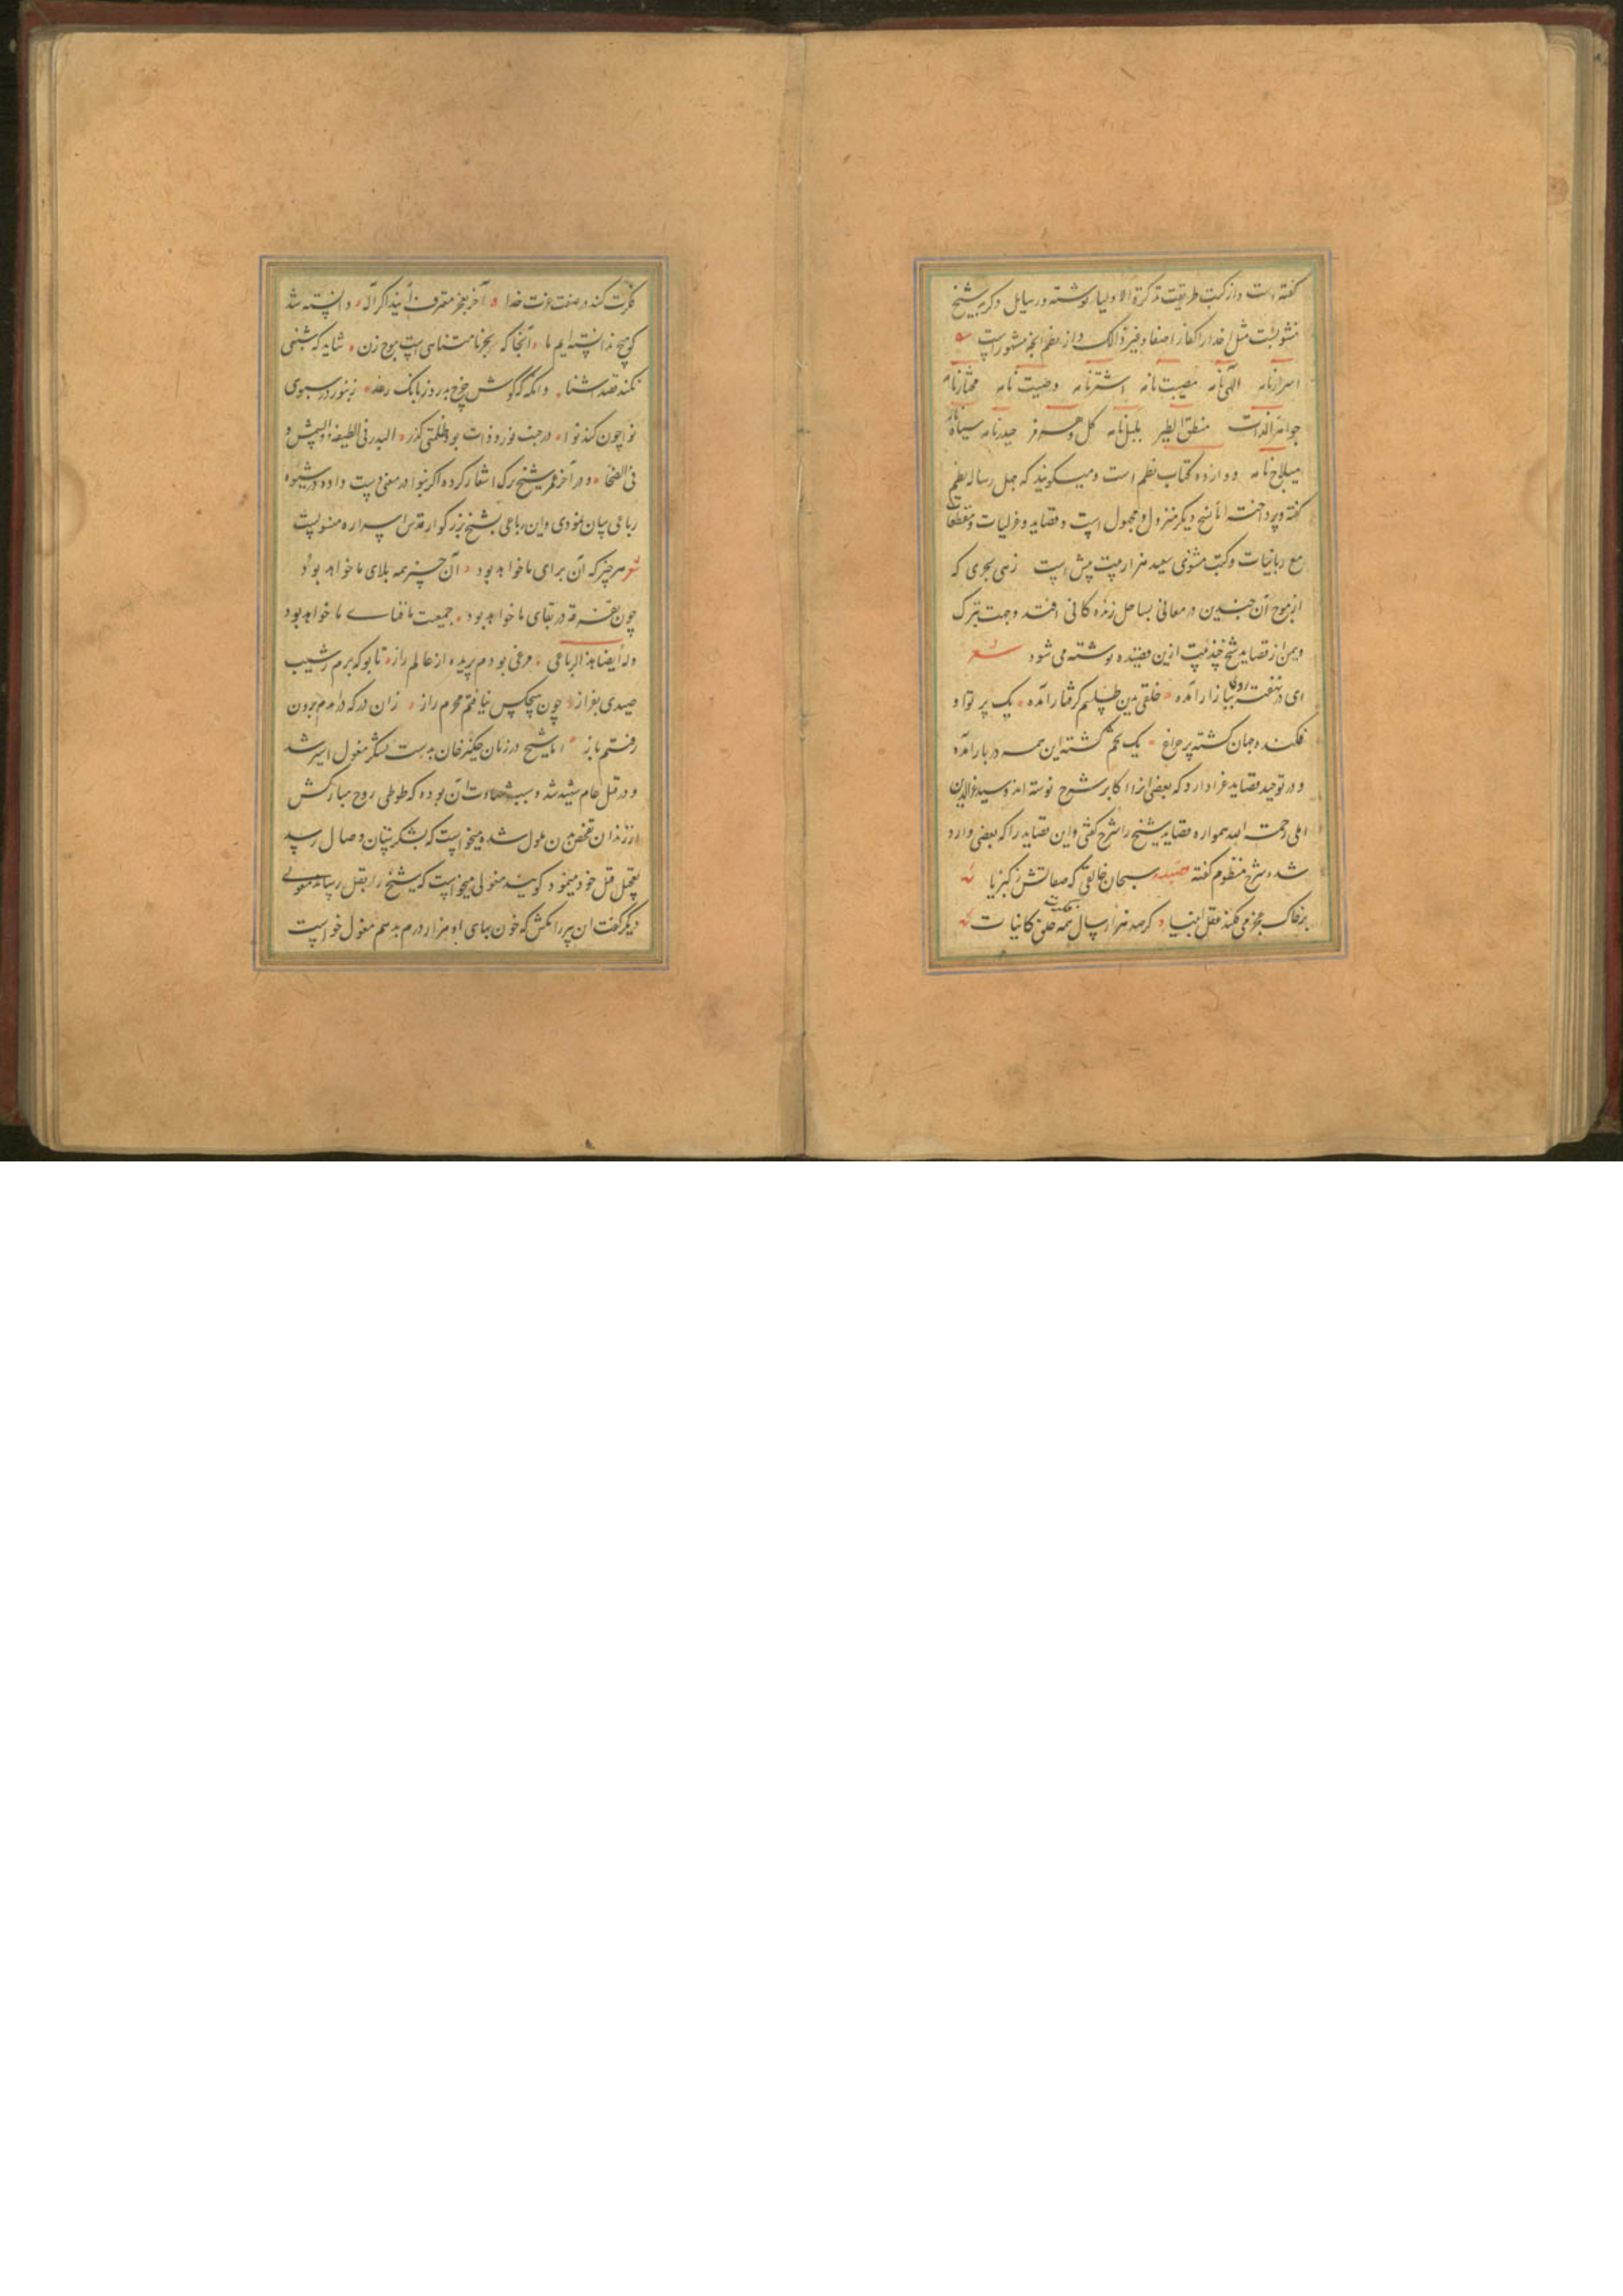 گفته است و از کتب طریقت تذکرة الاولیا نوشته و رسایل دیگر بشیخ
منسوبست مثل اخوان الصفا و غیر ذالک و از نظم آنچه مشهور است
اسرارنامه الهی نامه مصیبت نامه اشترنامه وصیت نامه مختارنامه
جواهر الذات منطق الطیر بلبل نامه گل و هرمز حیدرنامه سیاه نامه
دوازده کتاب نظم است و میگویند که چهل رساله نظم
گفته و پرداخته اما نسخ دیگر متروک و مجهول است و قصاید و غزلیات و مقطعات
مع رباعیات و کتب مثنوی صد هزار بیت بیش است زهی بحری که
از موج آن چندین در معانی بساحل زنده کانی افتد و جهت تبرک
و یمن از قصاید شیخ چند بیت ازین قصیده نوشته می شود شعر
ای روی در نهفته ببازار آمده خلقی بدین طلسم گرفتار آمده یک پرتو او
فکنده جهان گشته پر چراغ یک تخم کشته این همه در بار آمده
و در توحید قصاید غرا دارد که بعضی از آن اکابر شرح نوشته اند و سید عزالدین
املی رحمت الله همواره قصاید شیخ را شرح گفتی و این قصاید را که بعضی وارد
شده شرح منظوم گفته قصیده سبحان خالقی که صفاتش ز کبریا
بر خاک عجز می فکند عقل انبیا گر صد هزار سال همه خلق کاینات
فکرت کنند در صفت عزت خدا آخر بعجز معترف آیند کای اله دانسته شد
که هیچ ندانسته ایم ما آنجا که بحر نامتناهی است موج زن شاید که شبنمی
نکند قصد آشنا و آنکه که گوش چرخ بدرد ز بانگ رعد زنبور در سبوی
نوا چون کند نوا در جنب نور ذات بود ظلمتی کدر البدر فی الطلیعة و الشمس و
فی الضحا و در آخر عمر شیخ ترک اشعار کرده اگر بنوادر معنی دست دادی در شیوه
رباعی بیان نمودی و این رباعی بشیخ بزرگوار قدس اسراره منسوبست
شعر هر چیز که آن برای ما خواهد بود آن چیز همه بلای ما خواهد بود
چون تفرقه در بقای ما خواهد بود جمعیت ما فنای ما خواهد بود
وله ایضا هذا الرباعی مرغی بودم پریده از عالم راز تا بو که برم ز شیب
صیدی بفراز چون هیچکس نیافتم محرم راز زان در که درآمدم برون
رفتم باز اما شیخ در زمان چنگیز خان بدست لشکر مغول اسیر شد
و در قتل عام شهید شد و سبب شهادت آن بوده که طوطی روح مبارکش
از زندان قفص تن ملول شده میخواست که بشکرستان وصال رسد
تعجیل قتل خود مینمود گویند مغولی میخواست که شیخ را بقتل رساند مغولی
دیگر گفت این پیر را مکش که خون بهای او هزار درم بدهم مغول خواست